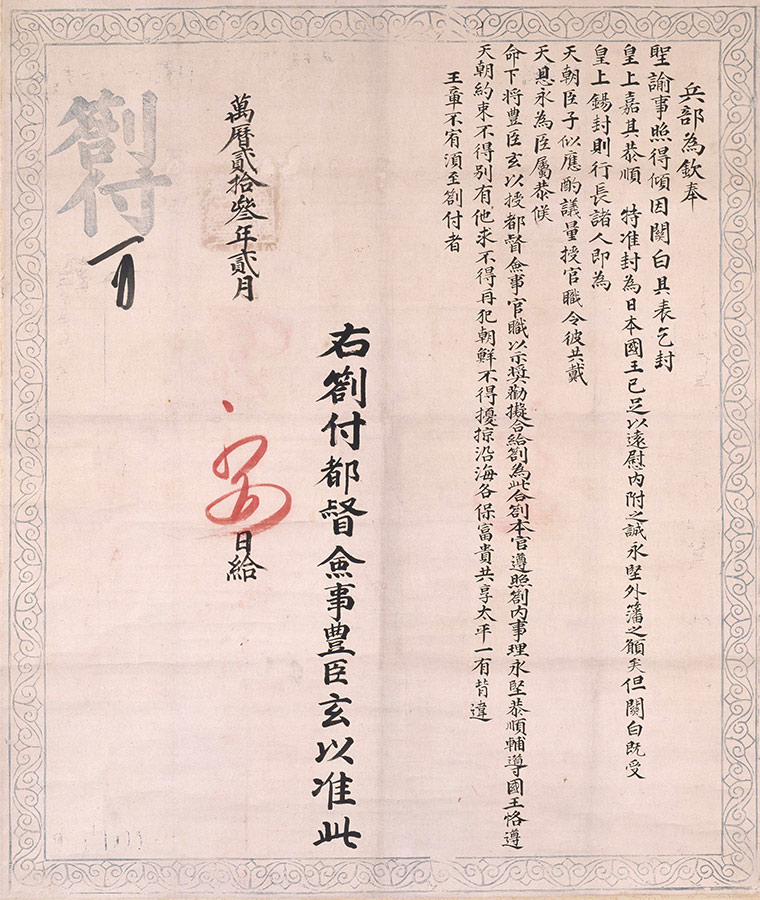 兵部為欽奉
聖諭事照得頃因關白具表乞封
皇上嘉其恭順 特准封為日本國王已足以遠慰內附之誠永堅外藩之願矣但關白既受
皇上錫封則行長諸人即為
天朝臣子似應酌議量授官職令彼共戴
天恩永為臣屬恭候
命下將豊臣玄以授都督僉事官職以示奬勸擬合給劄為此合劄本官遵照劄內事理永堅恭順輔導國王恪遵
天朝約束不得別有他求不得再犯朝鮮不得擾掠沿海各保富貴共享太平一有背違
王章不宥須至劄付者
右劄付都督僉事豊臣玄以准此
萬曆貳拾叄年貳月 日給
劄付